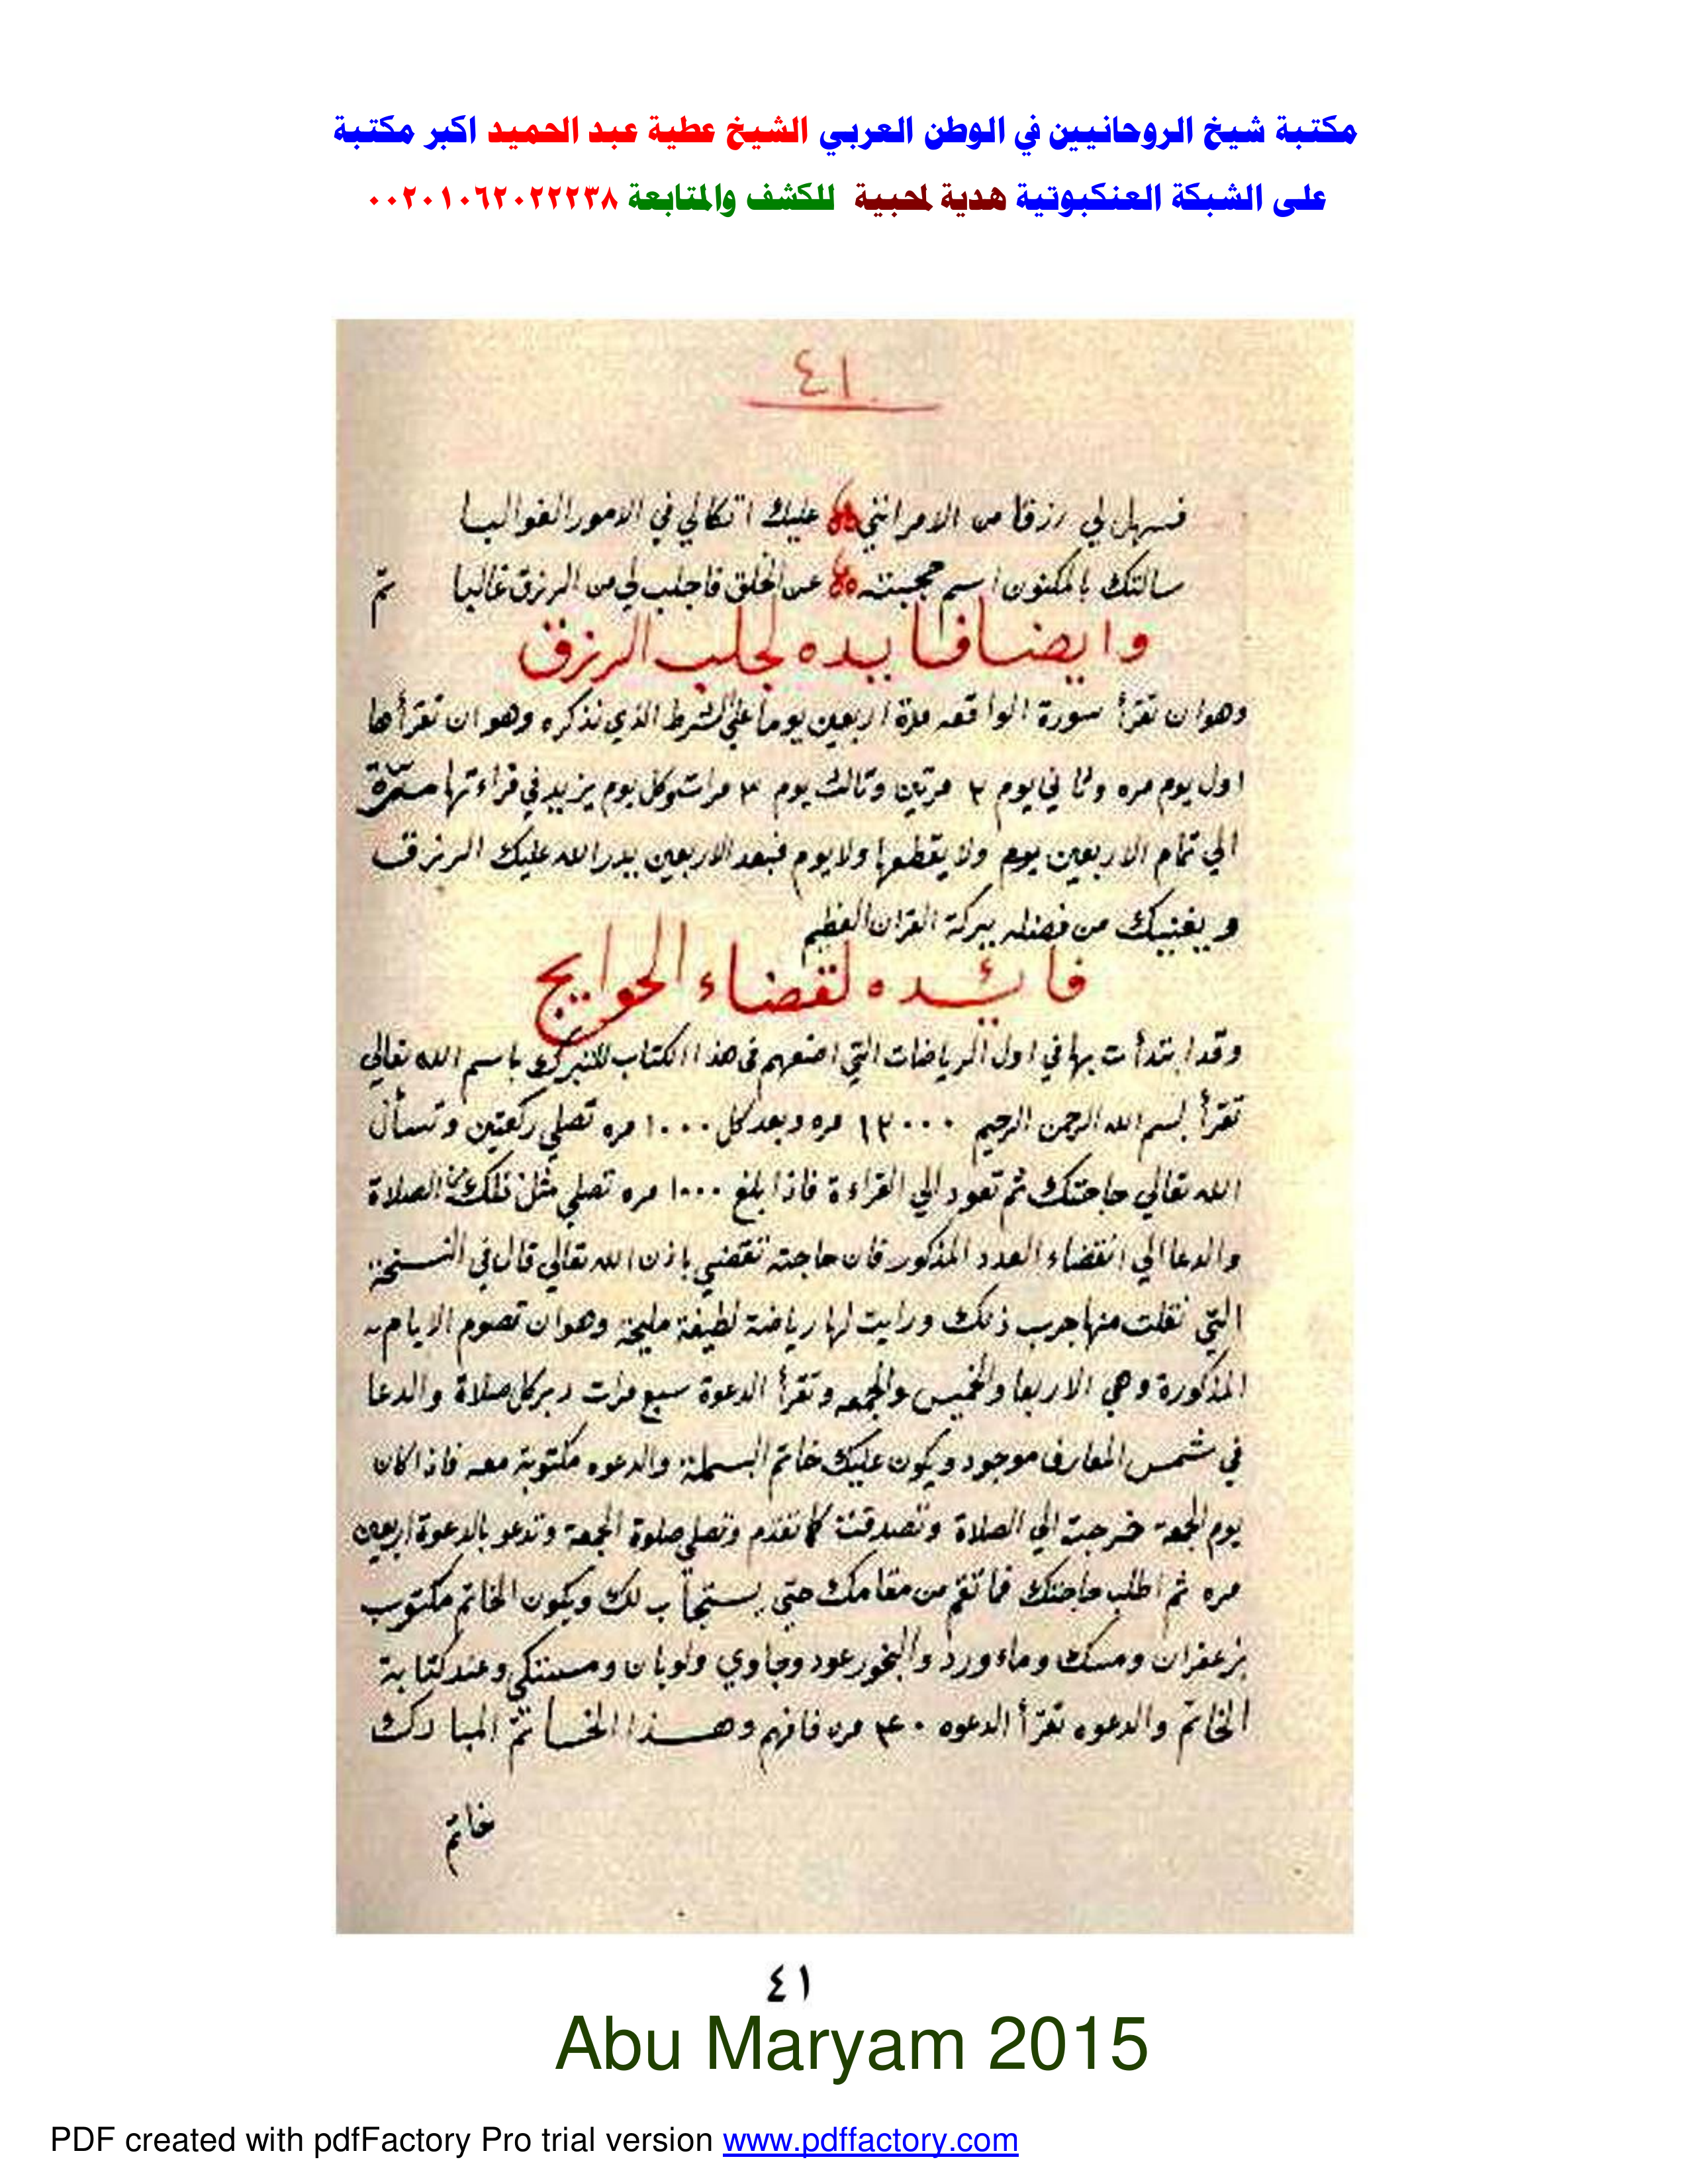 مكتبة شيخ الروحانيين في الوطن العربي الشيخ عطية عبد الحميد اكبر مكتبة
على الشبكة العنكبوتية هدية لمحبية للكشف والمتابعة ٠٠٢٠١٠٦٢٠٢٢٢٣٨
٤١
فسهل لي رزقا من الامر انني عليك اتكالي في الامور الغوالبا
سالتك بالمكنون اسم حجبته عن الخلق فاجلب لي من الرزق غالبا تم
وايضا فايده لجلب الرزق
وهو ان تقرأ سورة الواقعه مدة اربعين يوما على الشرط الذي نذكره وهو ان تقرأها
اول يوم مره وثاني يوم ٢ مرتين وثالث يوم ٣ مرات وكل يوم يزيد في قراءتها مرة
الي تمام الاربعين يوم ولا يقطعها ولا يوم فبعد الاربعين يدر الله عليك الرزق
ويغنيك من فضله ببركة القران العظيم
فائده لقضاء الحوايج
وقد ابتدأت بها في اول الرياضات التي اضعهم في هذا الكتاب للتبرك باسم الله تعالي
تقرأ بسم الله الرحمن الرحيم ١٢٠٠٠ مره وبعد كل ١٠٠٠ مره تصلي ركعتين وتسأل
الله تعالي حاجتك ثم تعود الي القراءة فاذا بلغ ١٠٠٠ مره تصلي مثل ذلك من الصلاة
والدعا الي انقضاء العدد المذكور فان حاجته تقضي باذن الله تعالي قال في النسخة
التي نقلت منها جرب ذلك ورايت لها رياضة لطيفة مليحة وهو ان تصوم الايام
المذكورة وهي الاربعا والخميس والجمعه وتقرأ الدعوة سبع مرات دبر كل صلاة والدعا
في شمس المعارف موجود ويكون عليك خاتم البسملة والدعوه مكتوبة معه فاذا كان
يوم الجمعة خرجت الي الصلاة وتصدقت كما تقدم وتصلي صلوة الجمعة وتدعو بالدعوة اربعين
مره ثم اطلب حاجتك فما تقم من مقامك حتي يستجاب لك ويكون الخاتم مكتوب
بزعفران ومسك وماء ورد والبخور عود وجاوي ولوبان ومستكي وعند كتابة
الخاتم والدعوه تقرأ الدعوه ٤٠ مره فافهم وهذا الخاتم المبارك
خاتم
٤١
Abu Maryam 2015
PDF created with pdfFactory Pro trial version www.pdffactory.com